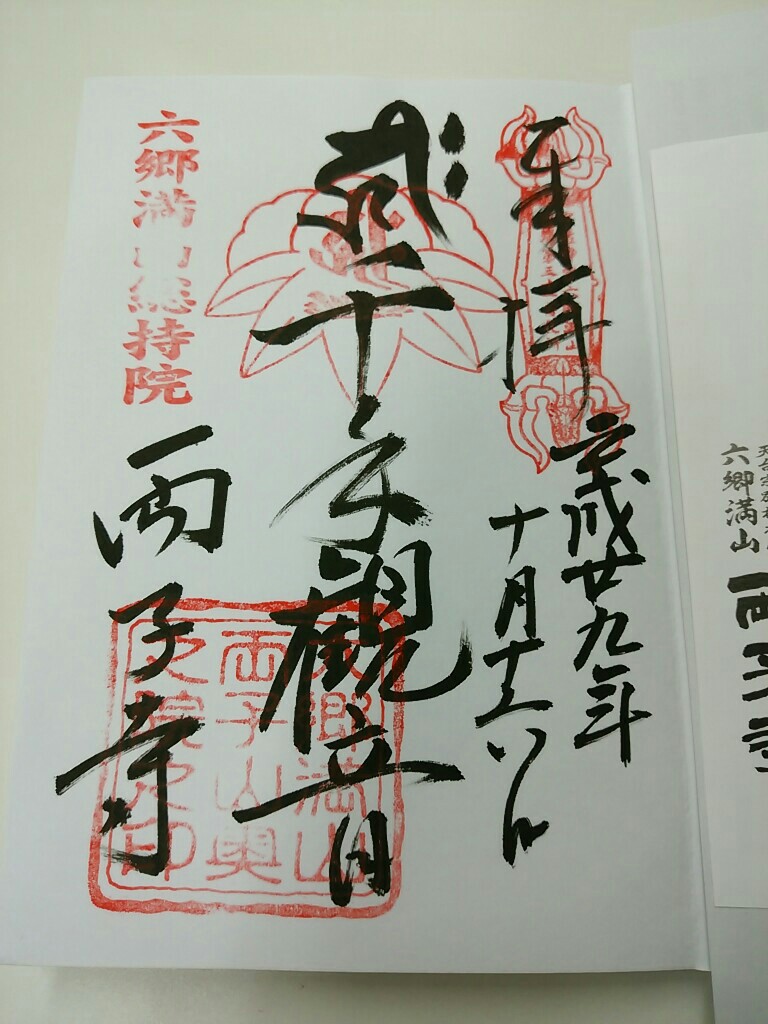 奉拝
平成廿九年
十月十六日
千手觀音
両子寺
六郷満山總持院
六郷満山
両子山奥
之院之印
六郷満山
両子寺